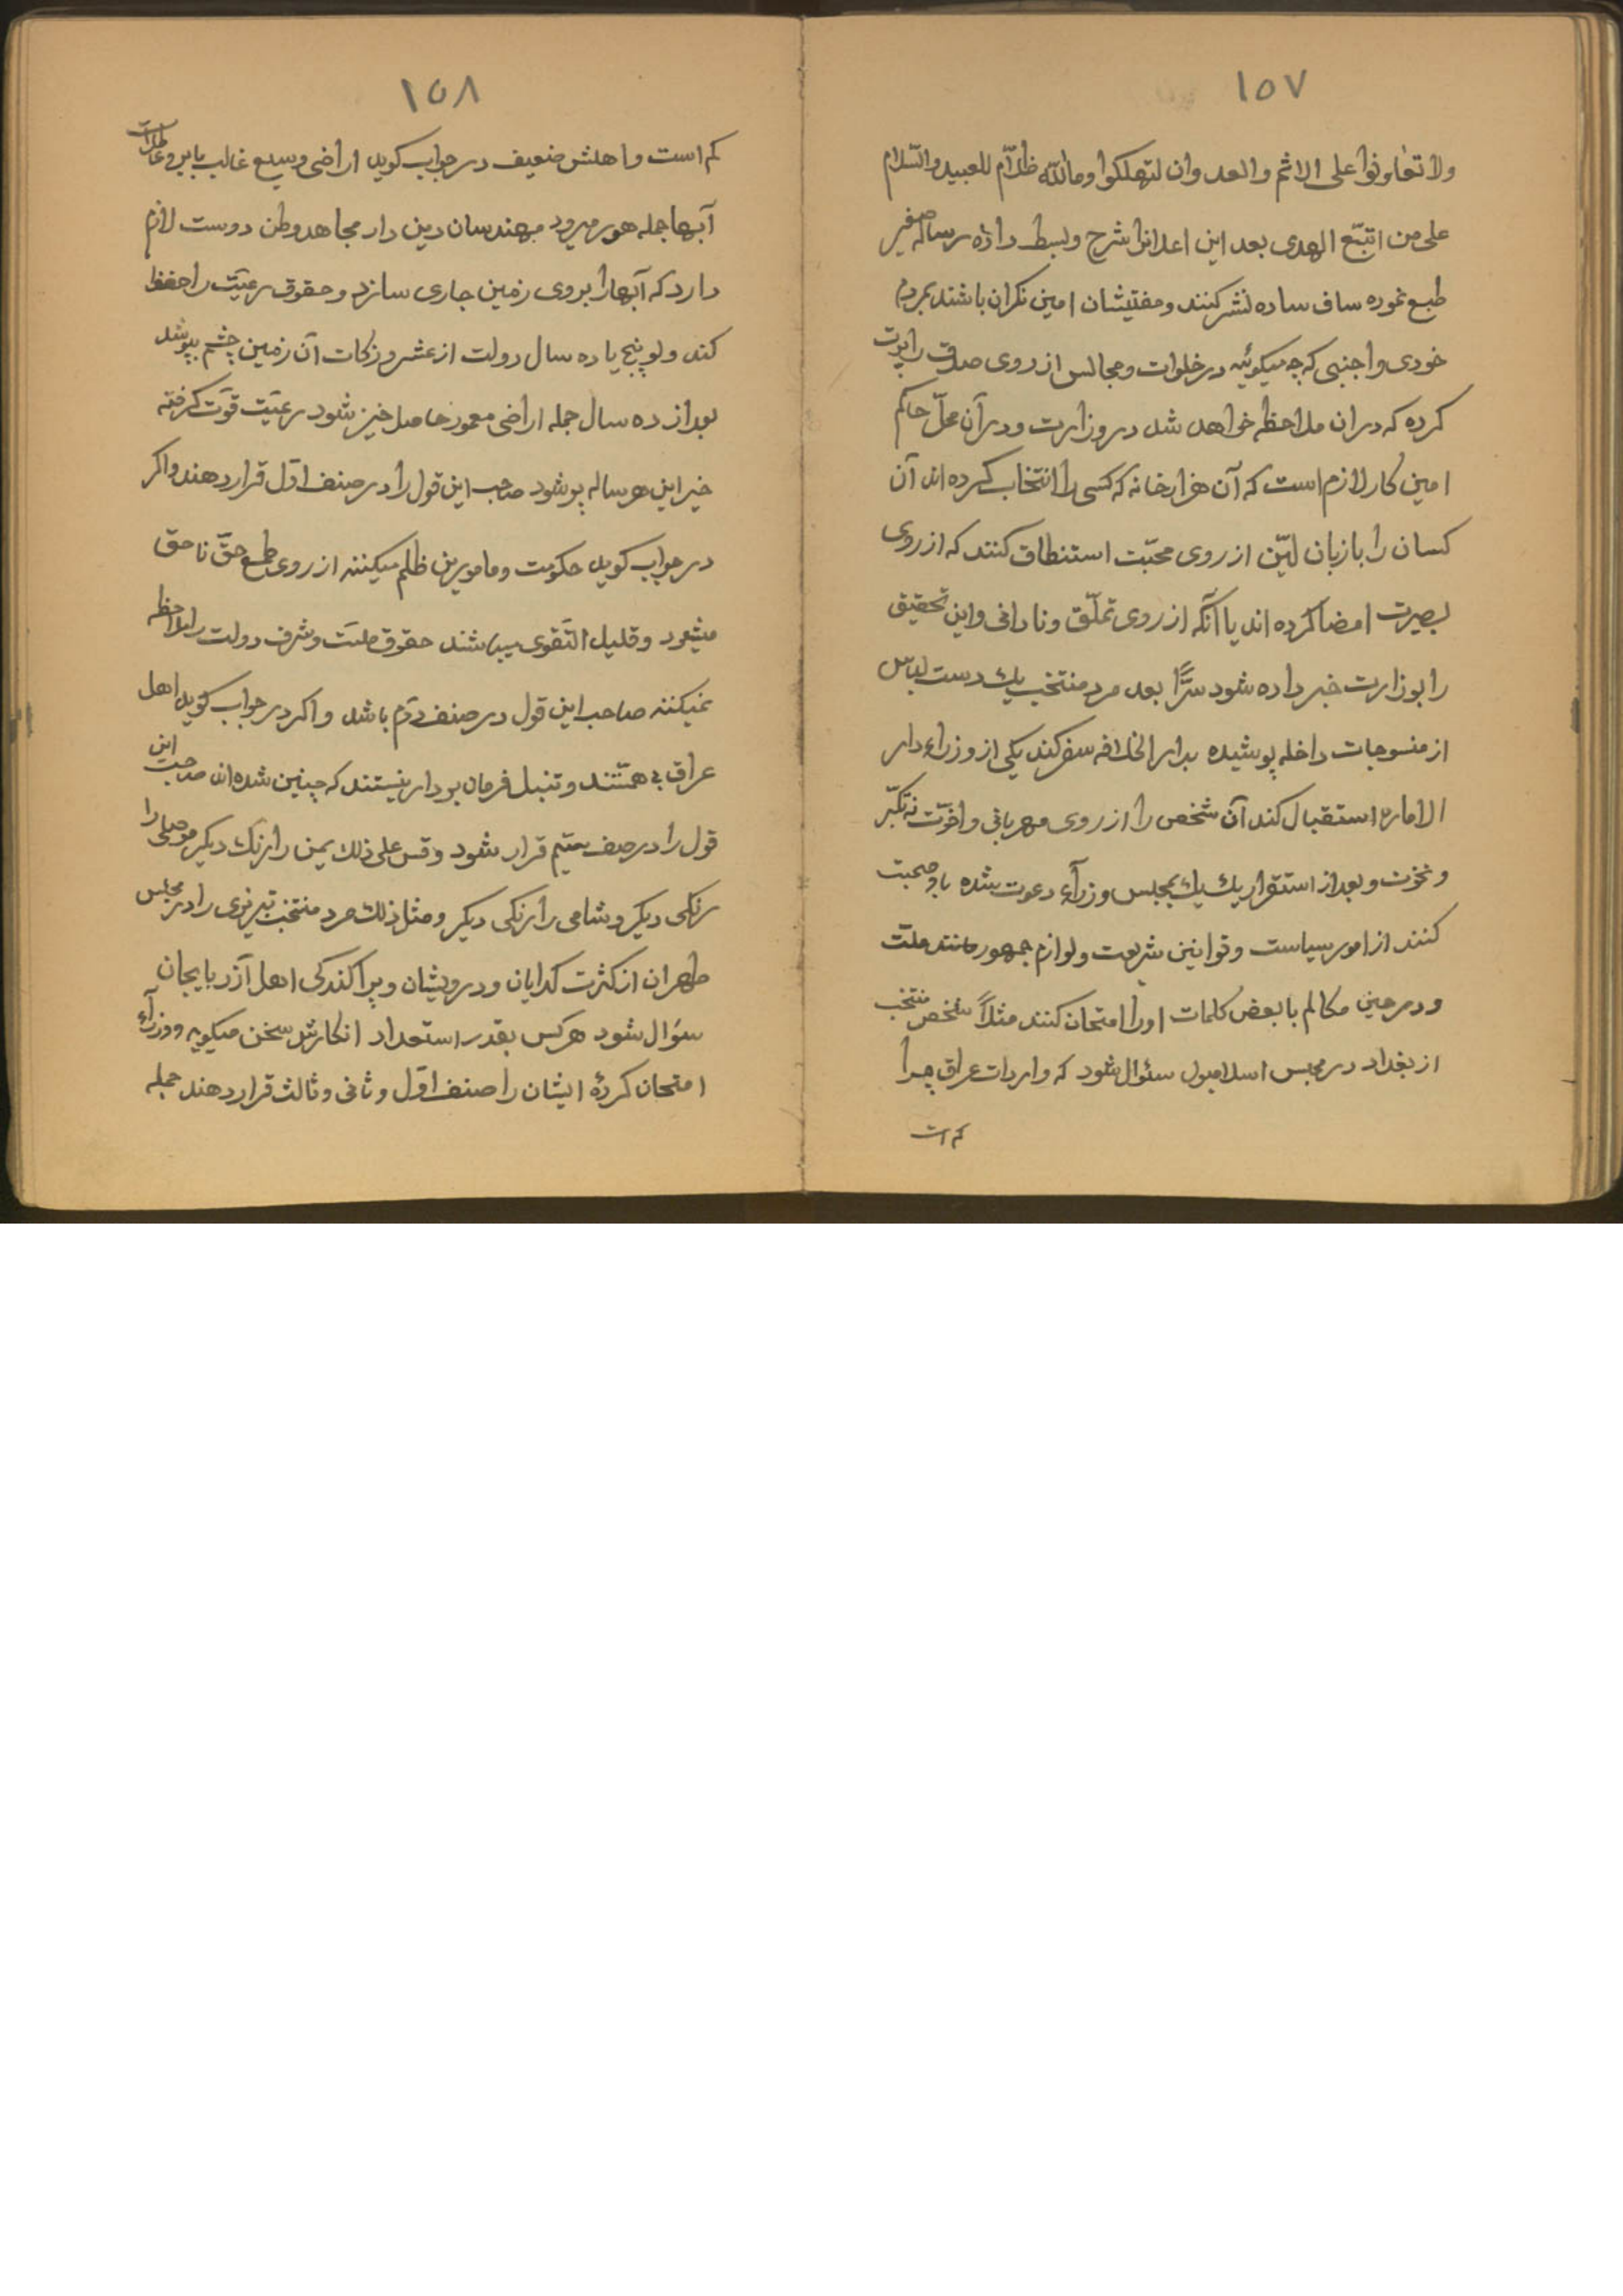 ۱۵۷
ولا تعاونوا على الاثم والعدوان لتهلكوا وما الله ظلّام للعبيد والسّلام
على من اتبّع الهدى بعد این اعلانرا شرح وبسط داده رساله صغیر
طبع نموده ساف ساده نشر کنند ومفتیشان امین نکران باشند بمردم
خودی واجنبی که چه میکویند در خلوات ومجالس از روی صدق راپرت
کرده که دران ملاحظه خواهد شد در وزارت ودر آن محلّ حاکم
امین کار لازم است که آن هزار خانه که کسی را انتخاب کرده اند آن
کسان را بازبان لیّن از روی محبّت استنطاق کنند که از روی
بصیرت امضا کرده اند یا آنکه از روی تملّق ونادانی واین تحقیق
را بوزارت خبر داده شود سرًّا بعد مرد منتخب یك دست لباس
از منسوجات داخله پوشیده بدار الخلافه سفر کند یکی از وزراء دار
الاماره استقبال کند آن شخص را از روی مهربانی واخوّت نه تکبّر
ونخوت وبعد از استقرار یك یك بمجلس وزرآء دعوت شده باو صحبت
کنند از امور سیاست وقوانین شریعت ولوازم جمهور مانند ملّت
ودر حین مکالم با بعض کلمات اورا امتحان کنند مثلاً شخص منتخب
از بغداد در مجلس اسلامبول سئوال شود که واردات عراق چرا
کم است
۱۵۸
کم است واهلش ضعیف در جواب کوید اراضی وسیع غالب بایر وعاطلات
آبها جمله هور میرود مهندسان دین دار مجاهد وطن دوست لازم
دارد که آبهارا بروی زمین جاری سازد وحقوق رعیّت را حفظ
کند ولو پنج یا ده سال دولت از عشر وزکات آن زمین چشم بپوشد
بعد از ده سال جمله اراضی معمور حاصل خیز شود رعیّت قوّت کرفته
خیر این هر ساله پر شود صاحب این قول را در صنف اوّل قرار دهند واکر
در جواب کوید حکومت ومامورین ظلم میکنند از روی طمع حقّ ناحق
میشود وقلیل التّقوی میباشند حقوق ملّت وشرف دولت را ملاحظه
نمیکنند صاحب این قول در صنف دوّم باشد واکر در جواب کوید اهل
عراق بی همّتند وتنبل فرمان بردار نیستند که چنین شده اند صاحب این
قول را در صنف سیّم قرار شود وقس على ذلك یمن را رنك دیکر موصلی را
رنکی دیکر وشامی را رنکی دیکر ومثل ذلك مرد منتخب تبریزی را در مجلس
طهران از کثرت کدایان ودرویشان وپراکندکی اهل آذربایجان
سؤال شود هر کس بقدر استعداد افکارش سخن میکوید ووزرآء
امتحان کرده ایشان را صنف اوّل وثانی وثالث قرار دهند جمله